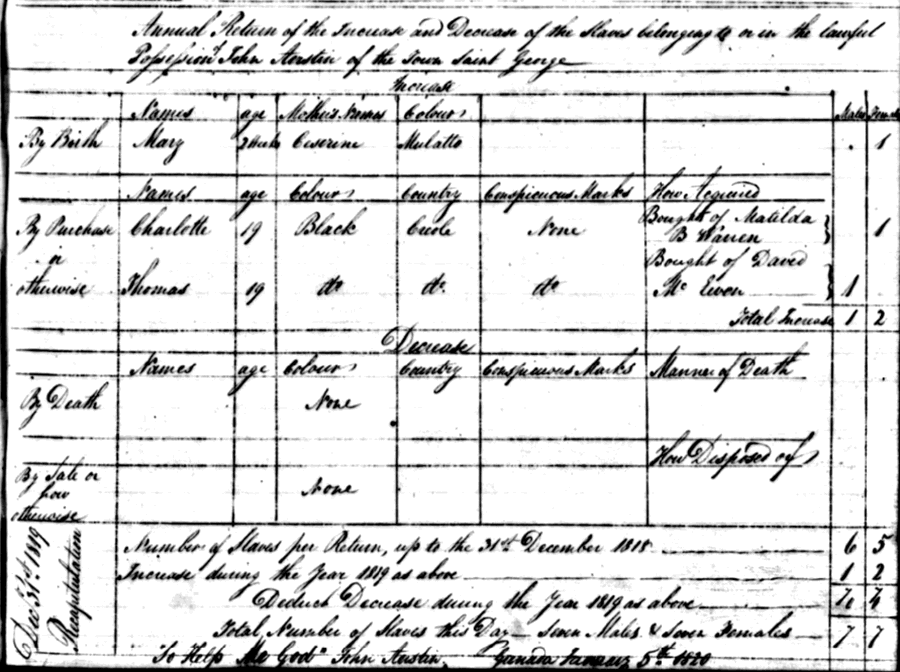 Annual Return of the Increase and Decrease of the Slaves belonging to or in the lawful
Possession of John Austin of the Town Saint George
Increase
Names age Mother's Names Colour Males Females
By Birth Mary 2 Weeks Mulatto 1
Names age Colour Country Conspicuous Marks How Acquired
By Purchase Charlotte 19 Black Creole None Bought of Matilda
B Warren 1
or Bought of David
otherwise Thomas 19 do do do Mc Ewen 1
Total Increase 1 2
Decrease
Names age Colour Country Conspicuous Marks Manner of Death
By Death None
How Disposed of
By Sale or
how None
otherwise
Decr 31st 1819
Recapitulation
Number of Slaves per Return, up to the 31st December 1818 6 5
Increase during the Year 1819 as above 1 2
Deduct Decrease during the Year 1819 as above
Total Number of Slaves this Day Seven Males & Seven Females 7 7
So Help Me God John Austin Grenada January 5th 1820